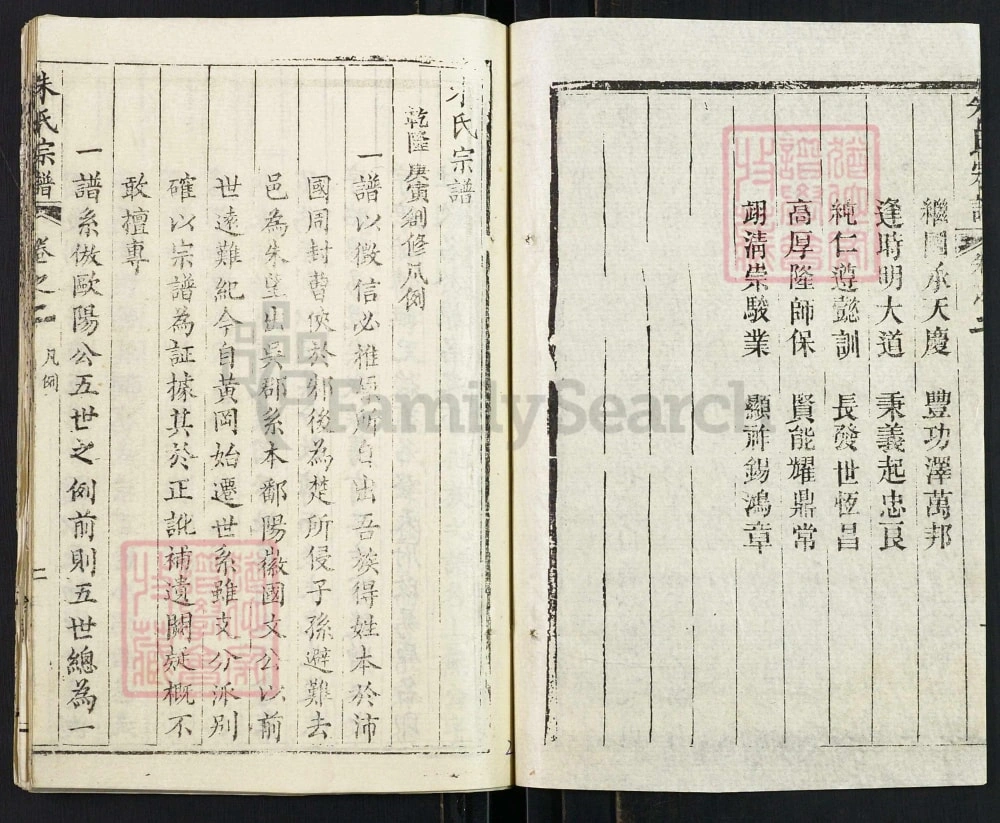 繼國承天慶 豐功澤萬邦
逢時明大道 秉義起忠良
純仁遵懿訓 長發世恆昌
高厚隆師保 賢能耀鼎常
翊淸崇駿業 顯祚錫鴻章
朱氏宗譜
乾隆庚寅創修凡例
一譜以徵信必推原所自出吾族得姓本於沛
國周封曹俠於邾後為楚所侵子孫避難去
邑為朱望出吳郡系本鄱陽徽國文公以前
世遠難紀今自黃岡始遷世系雖支分派別
確以宗譜為証據其於正訛補遺闕疑概不
敢擅專
一譜系倣歐陽公五世之例前則五世總為一
朱氏宗譜 卷之二 凡例 二
FamilySearch